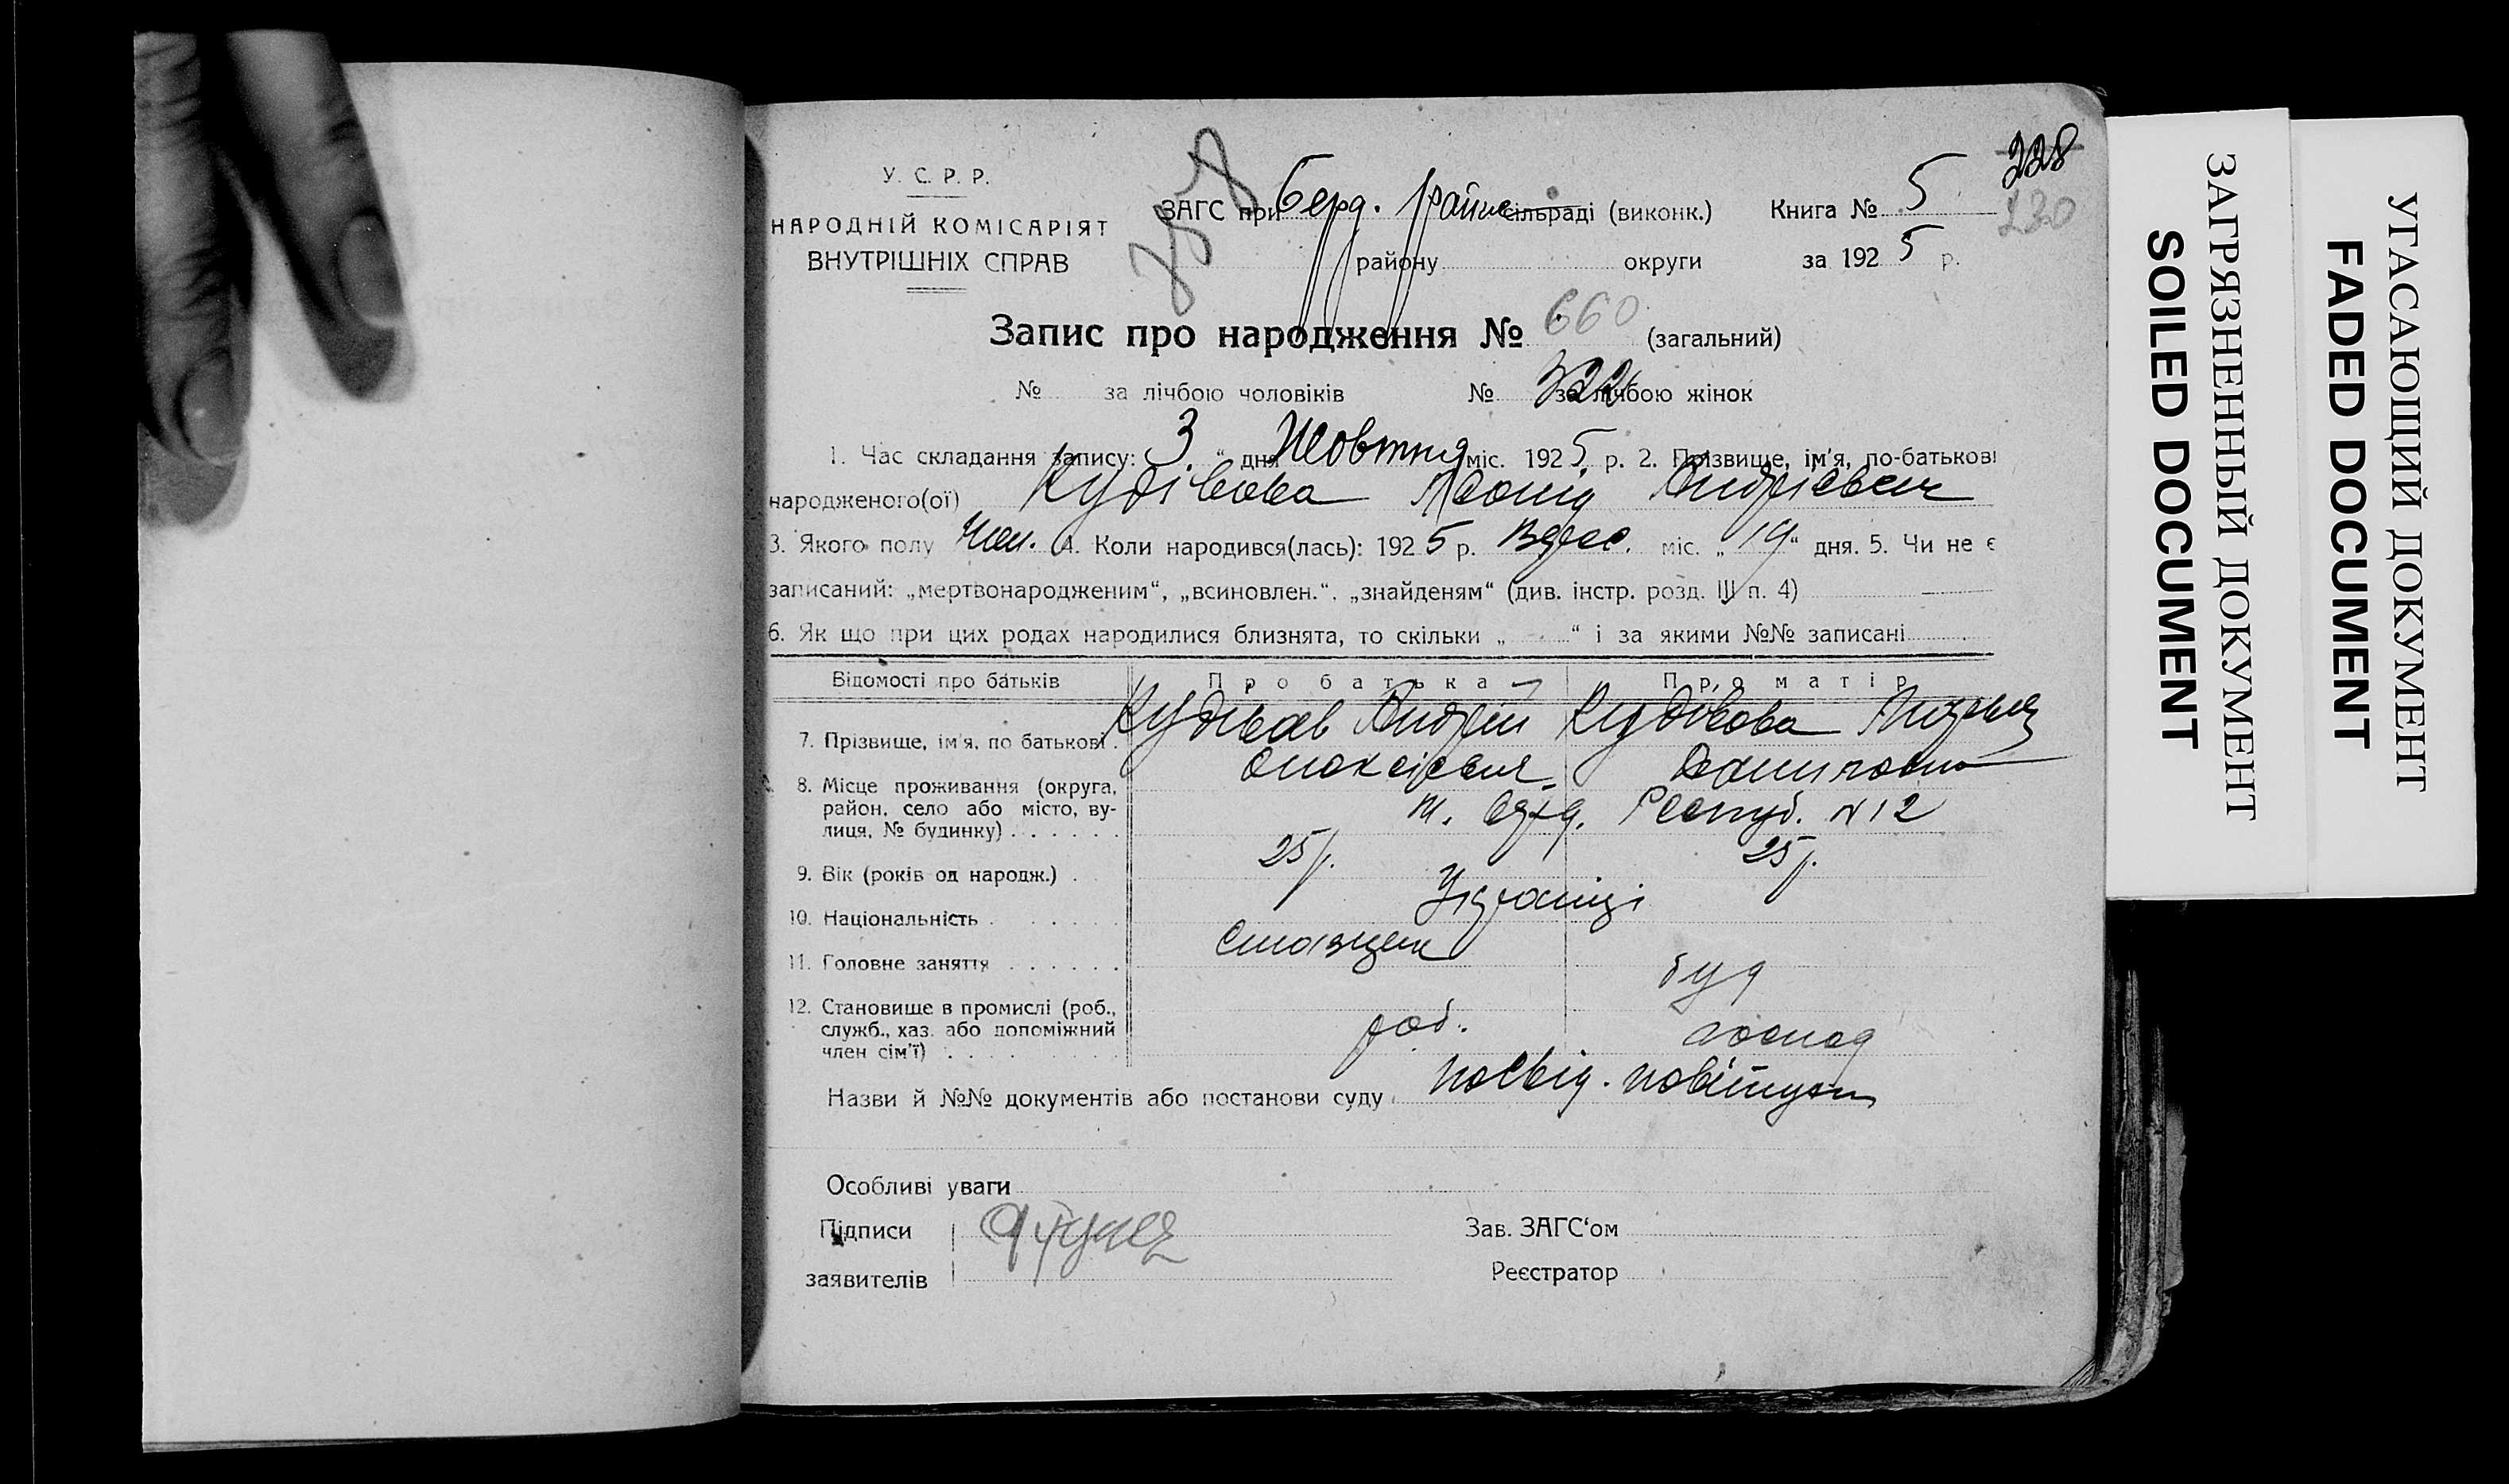 228
У. С. Р. Р.
ЗАГС при Берд. сільраді (виконк.) Книга № 5
230
НАРОДНІЙ КОМІСАРІЯТ
ВНУТРІШНІХ СПРАВ
району округи за 1925 р.
Запис про народження № 660 (загальний)
№ за лічбою чоловіків № 322 за лічбою жінок
1. Час складання запису: 3 " дня Жовтня міс. 1925 р. 2. Прізвище, ім'я, по-батькові
народженого(ої) Леонід Андрієвич
3. Якого полу Чол. 4. Коли народився(лась): 1925 р. міс. „ 19 “ дня. 5. Чи не є
записаний: „мертвонародженим“, „всиновлен.“. „знайденям“ (див. інстр. розд. III п. 4)
6. Як що при цих родах народилися близнята, то скільки „ “ і за якими №№ записані
Відомості про батьків Про батька Про матір
7. Прізвище, ім'я, по батькові Андрій
8. Місце проживання (округа, район, село або місто, ву-
лиця, № будинку) м. Респуб. N 12
9. Вік (років од народж.) 25 р. 25 р.
10. Національність Українці
11. Головне заняття
12. Становище в промислі (роб.,
служб., хаз. або допоміжний
член сім'ї) роб. господ
Назви й №№ документів або постанови суду посвід. повітухи
Особливі уваги
Підписи Зав. ЗАГС‘ом
заявителів Реєстратор
ЗАГРЯЗНЕННЫЙ ДОКУМЕНТ
SOILED DOCUMENT
УГАСАЮЩИЙ ДОКУМЕНТ
FADED DOCUMENT